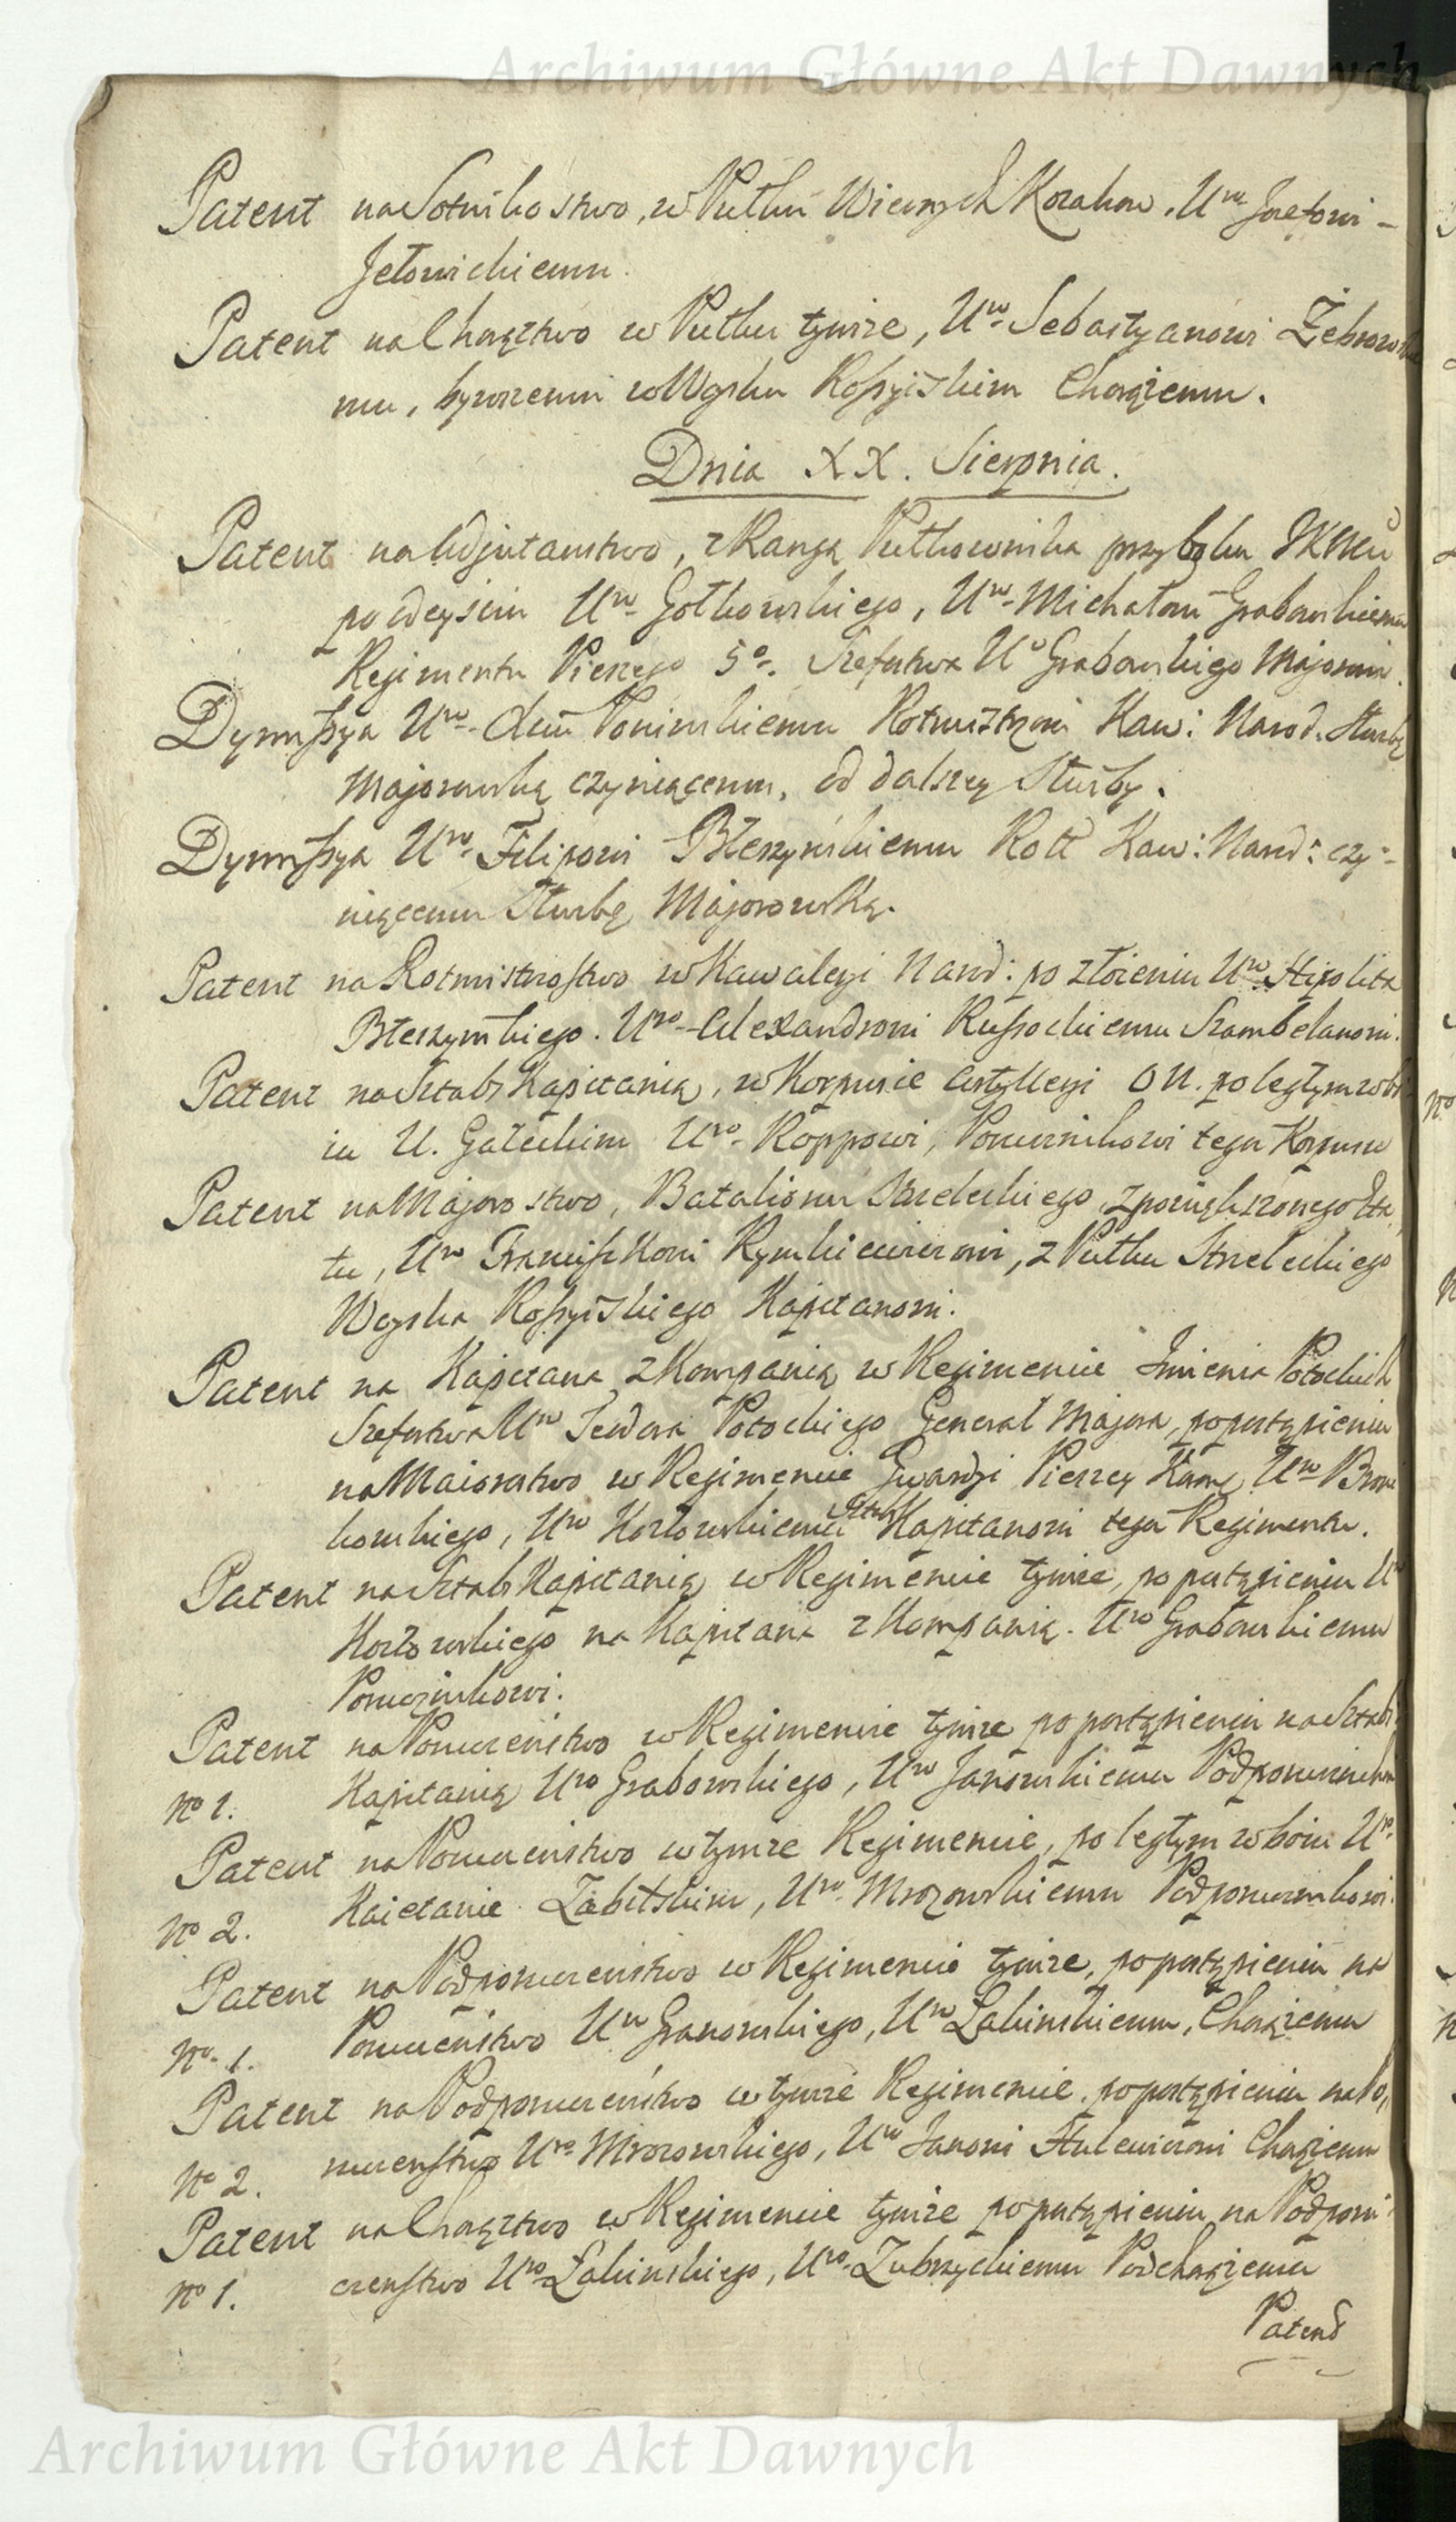 Archiwum Główne Akt Dawnych
Patent na Sotnikostwo, w Pułku Wiernych Kozakow, Uro Jozefowi
Jełowickiemu.
Patent na Chorąztwo w Pułku tymże, Uro Sebastyanowi Żebrows
mu, bywszemu w Woysku Rossyiskim Chorążemu.
Dnia XX. Sierpnia.
Patent na Adjutanstwo, z Rangą Pułkownika przy boku
po odeyściu Uro Gołkowskiego, Uro Michałowi Grabowskiemu
Regimentu Pieszego 5o. Szefostwa Uo Grabowskiego Majorowi.
Dymissya Uro Ponińskiemu Rotmistrzowi Kaw: Narod. słuzbę
Majorowską czyniącemu, od dalszey słuzby.
Dymissya Uro Filipowi Błeszyńskiemu Rott Kaw: Narod: czy-
niącemu słuzbę Majorowską.
Patent na Rotmistrostwo w Kawaleryi Narod: po złożeniu Uro Hipolita
Błeszyńskiego. Uro Alexandrowi Russockiemu Szambelanowi.
Patent na Sztabs Kapitanią, w Korpusie Artylleryi O N. poległym w bo
iu U. Gałeckim Uro Roppowi, Porucznikowi tegoż Korpusu
Patent na Majorostwo, Batalionu Strzeleckiego, z powiększonego Eta
tu, Uro Franciszkowi Rymkiewiczowi, z Pułku Strzeleckiego
Woyska Rossyiskiego Kapitanowi.
Patent na Kapitana z Kompanią w Regimencie Imienia Potockich
Szefostwa Uro Potockiego Generał Majora, po postąpieniu
na Maiorstwo w Regimencie Gwardyi Pieszey Uro Bron
kowskiego, Uro Kozłowskiemu Sztabs Kapitanowi tegoż Regimentu.
Patent na Sztabs Kapitanią w Regimencie tymże, po postąpieniu U
Kozłowskiego na Kapitana z Kompanią. Uro Grabowskiemu
Porucznikowi.
Patent na Poruczeństwo w Regimencie tymże po postąpieniu na Sztabs
No 1. Kapitanią Uro Grabowskiego, Uro Janowskiemu Podporucznikow
Patent na Poruczeństwo w tymże Regimencie, po ległym w boiu Uro
No 2. Kaietanie Zabełskim, Uro Mrozowskiemu Podporucznikowi.
Patent na Podporuczeństwo w Regimencie tymże, po postąpieniu na
No. 1. Poruczeństwo Uro Janowskiego, Uro Łabińskiemu, Chorążemu
Patent na Podporuczeństwo w tymże Regimencie, po postąpieniu na Po,
No 2. ruczenstwo Uro Mrozowskiego, Uro Janowi Hulewiczowi Chorążemu
Patent na Chorąztwo w Regimencie tymże po postąpieniu na Podporu
No 1. czenstwo Uro Łabinskiego, Uro Zubrzyckiemu Podchorążemu
Patent
Archiwum Główne Akt Dawnych